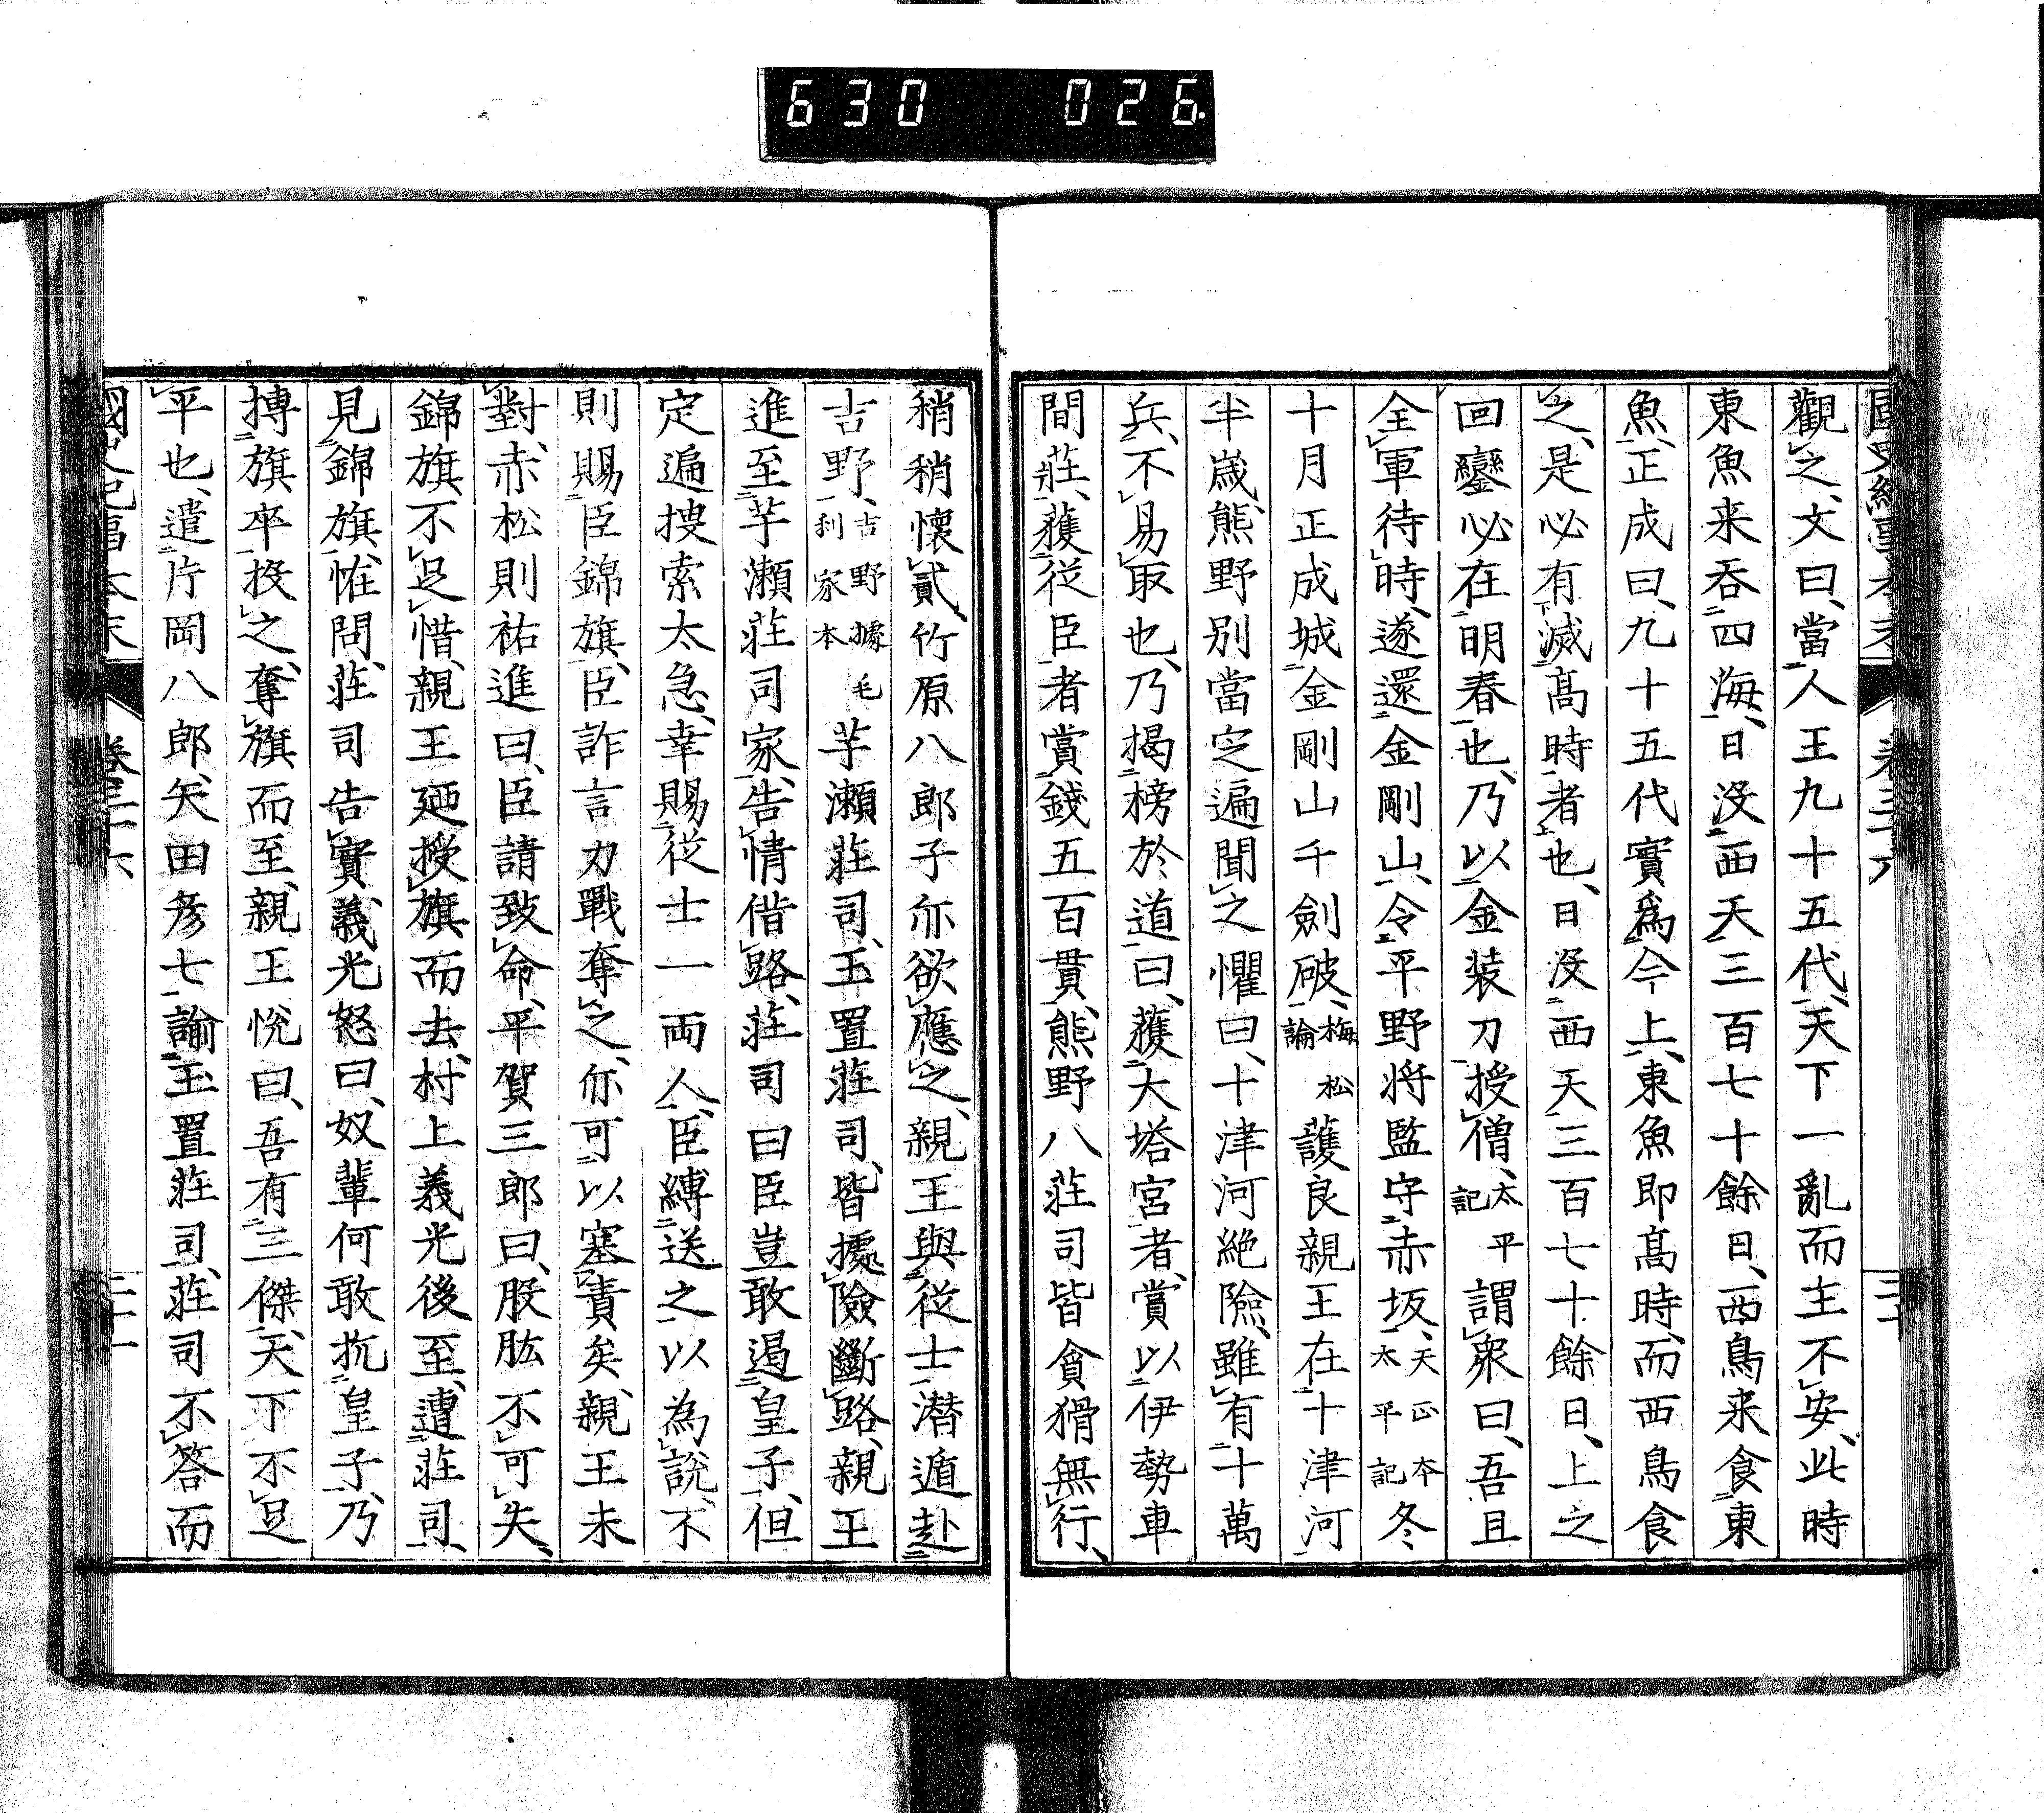 630 026
觀之文曰當人王九十五代天下一亂而主不安此時
東魚来吞四海日没西天三百七十餘日西鳥来食東
魚正成曰九十五代實爲今上東魚即髙時而西鳥食
之是必有滅髙時者也日没西天三百七十餘日上之
回鑾必在明春也乃以金装刀授僧太平記謂衆曰吾且
全軍待時遂還金剛山令平野将監守赤坂天正本太平記冬
十月正成城金剛山千劍破梅松論護良親王在十津河
半歲熊野別當定遍聞之懼曰十津河絶險雖有十萬
兵不易取也乃揭榜於道曰獲大塔宮者賞以伊勢車
間莊獲従臣者賞錢五百貫熊野八莊司皆貪猾無行
稍稍懷貳竹原八郎子亦欲應之親王與従士潜遁赴
吉野吉野據毛利家本芋瀬莊司玉置莊司皆據險斷路親王
進至芋瀬莊司家告情借路莊司曰臣豈敢遏皇子但
定遍捜索太急幸賜従士一両人臣縛送之以為說不
則賜臣錦旗臣詐言力戰奪之亦可以塞責矣親王未
對赤松則祐進曰臣請致命平賀三郎曰股肱不可失
錦旗不足惜親王廼授旗而去村上義光後至遭莊司
見錦旗恠問莊司告實義光怒曰奴輩何敢抗皇子乃
搏旗卒投之奪旗而至親王悅曰吾有三傑天下不足
平也遣片岡八郎矢田彦七諭玉置莊司莊司不答而